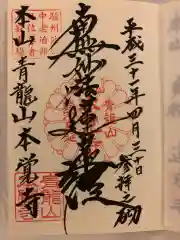 平成三十一年四月三十日 参拝之砌
南無妙法蓮華経
本山青龍山本覚寺
青龍山